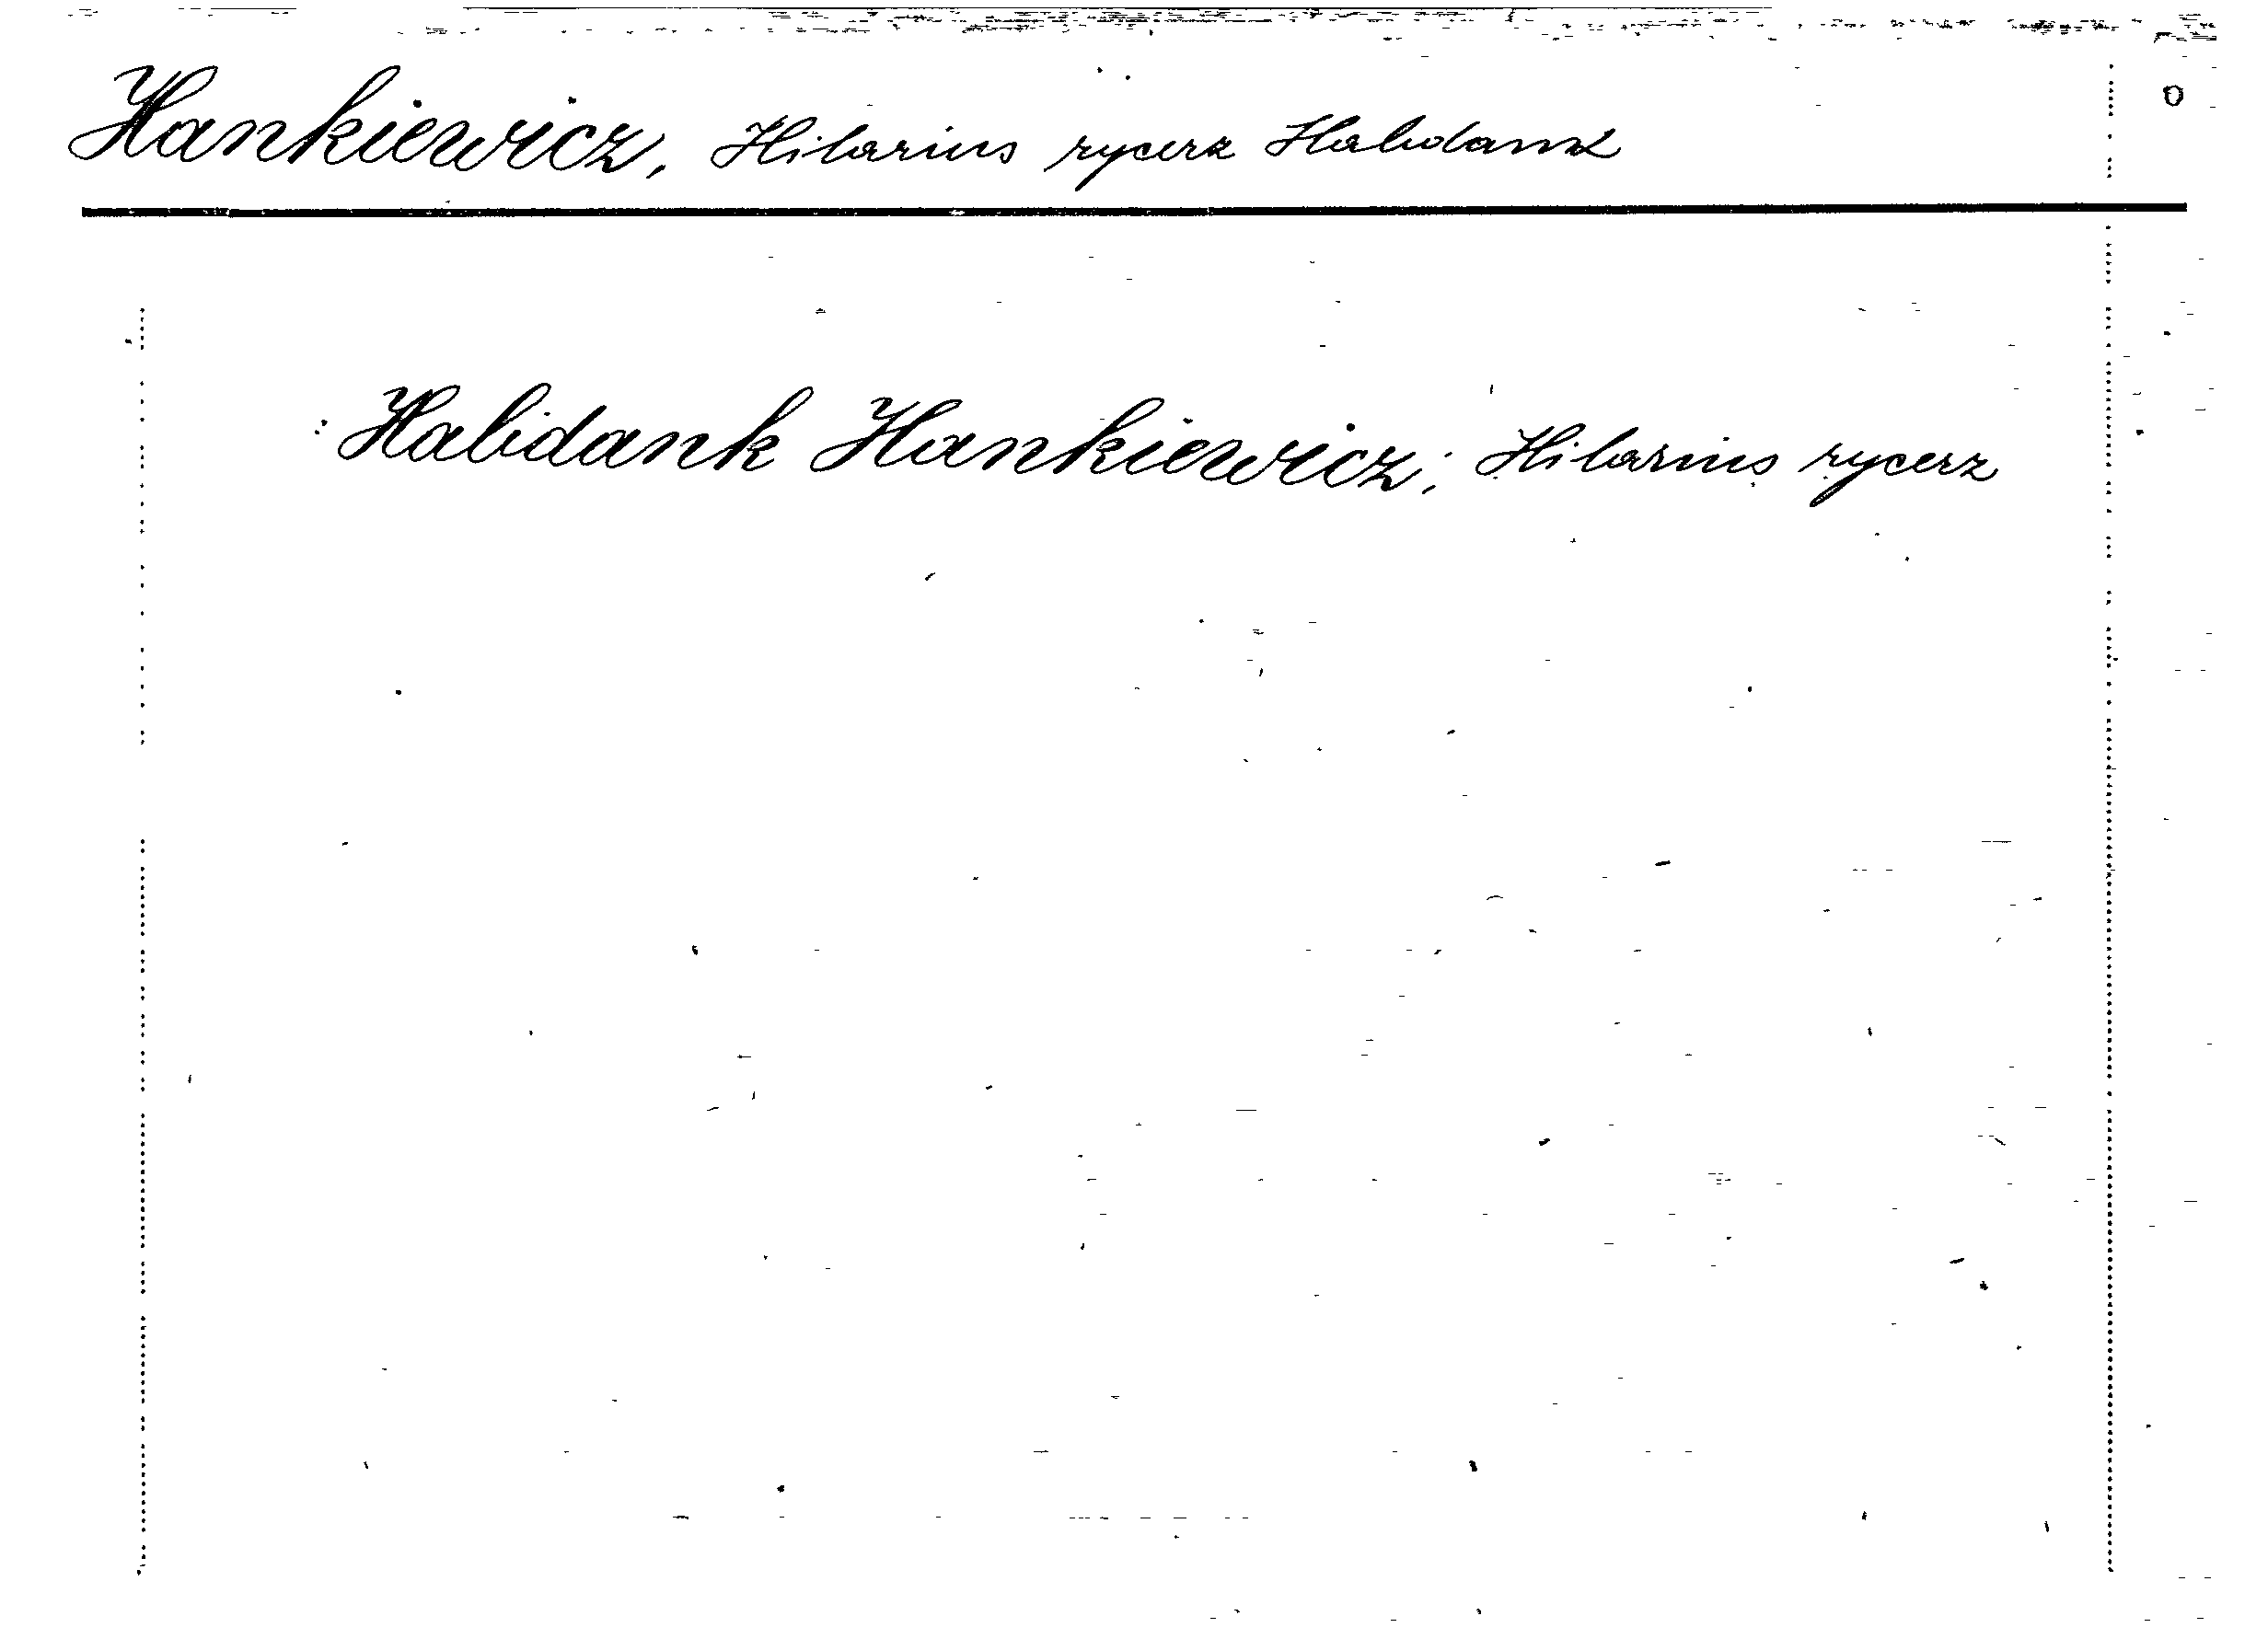 Hankiewicz, Hilarius rycerz Habdank
: Habdank Hankiewicz, Hilarius rycerz